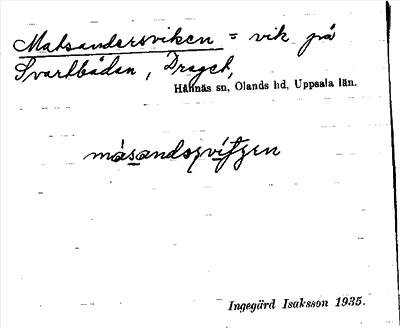 Matsandersviken = vik på
Svartbådan, Draget,
Hållnäs sn, Olands hd, Uppsala län.
Ingegärd Isaksson 1935.